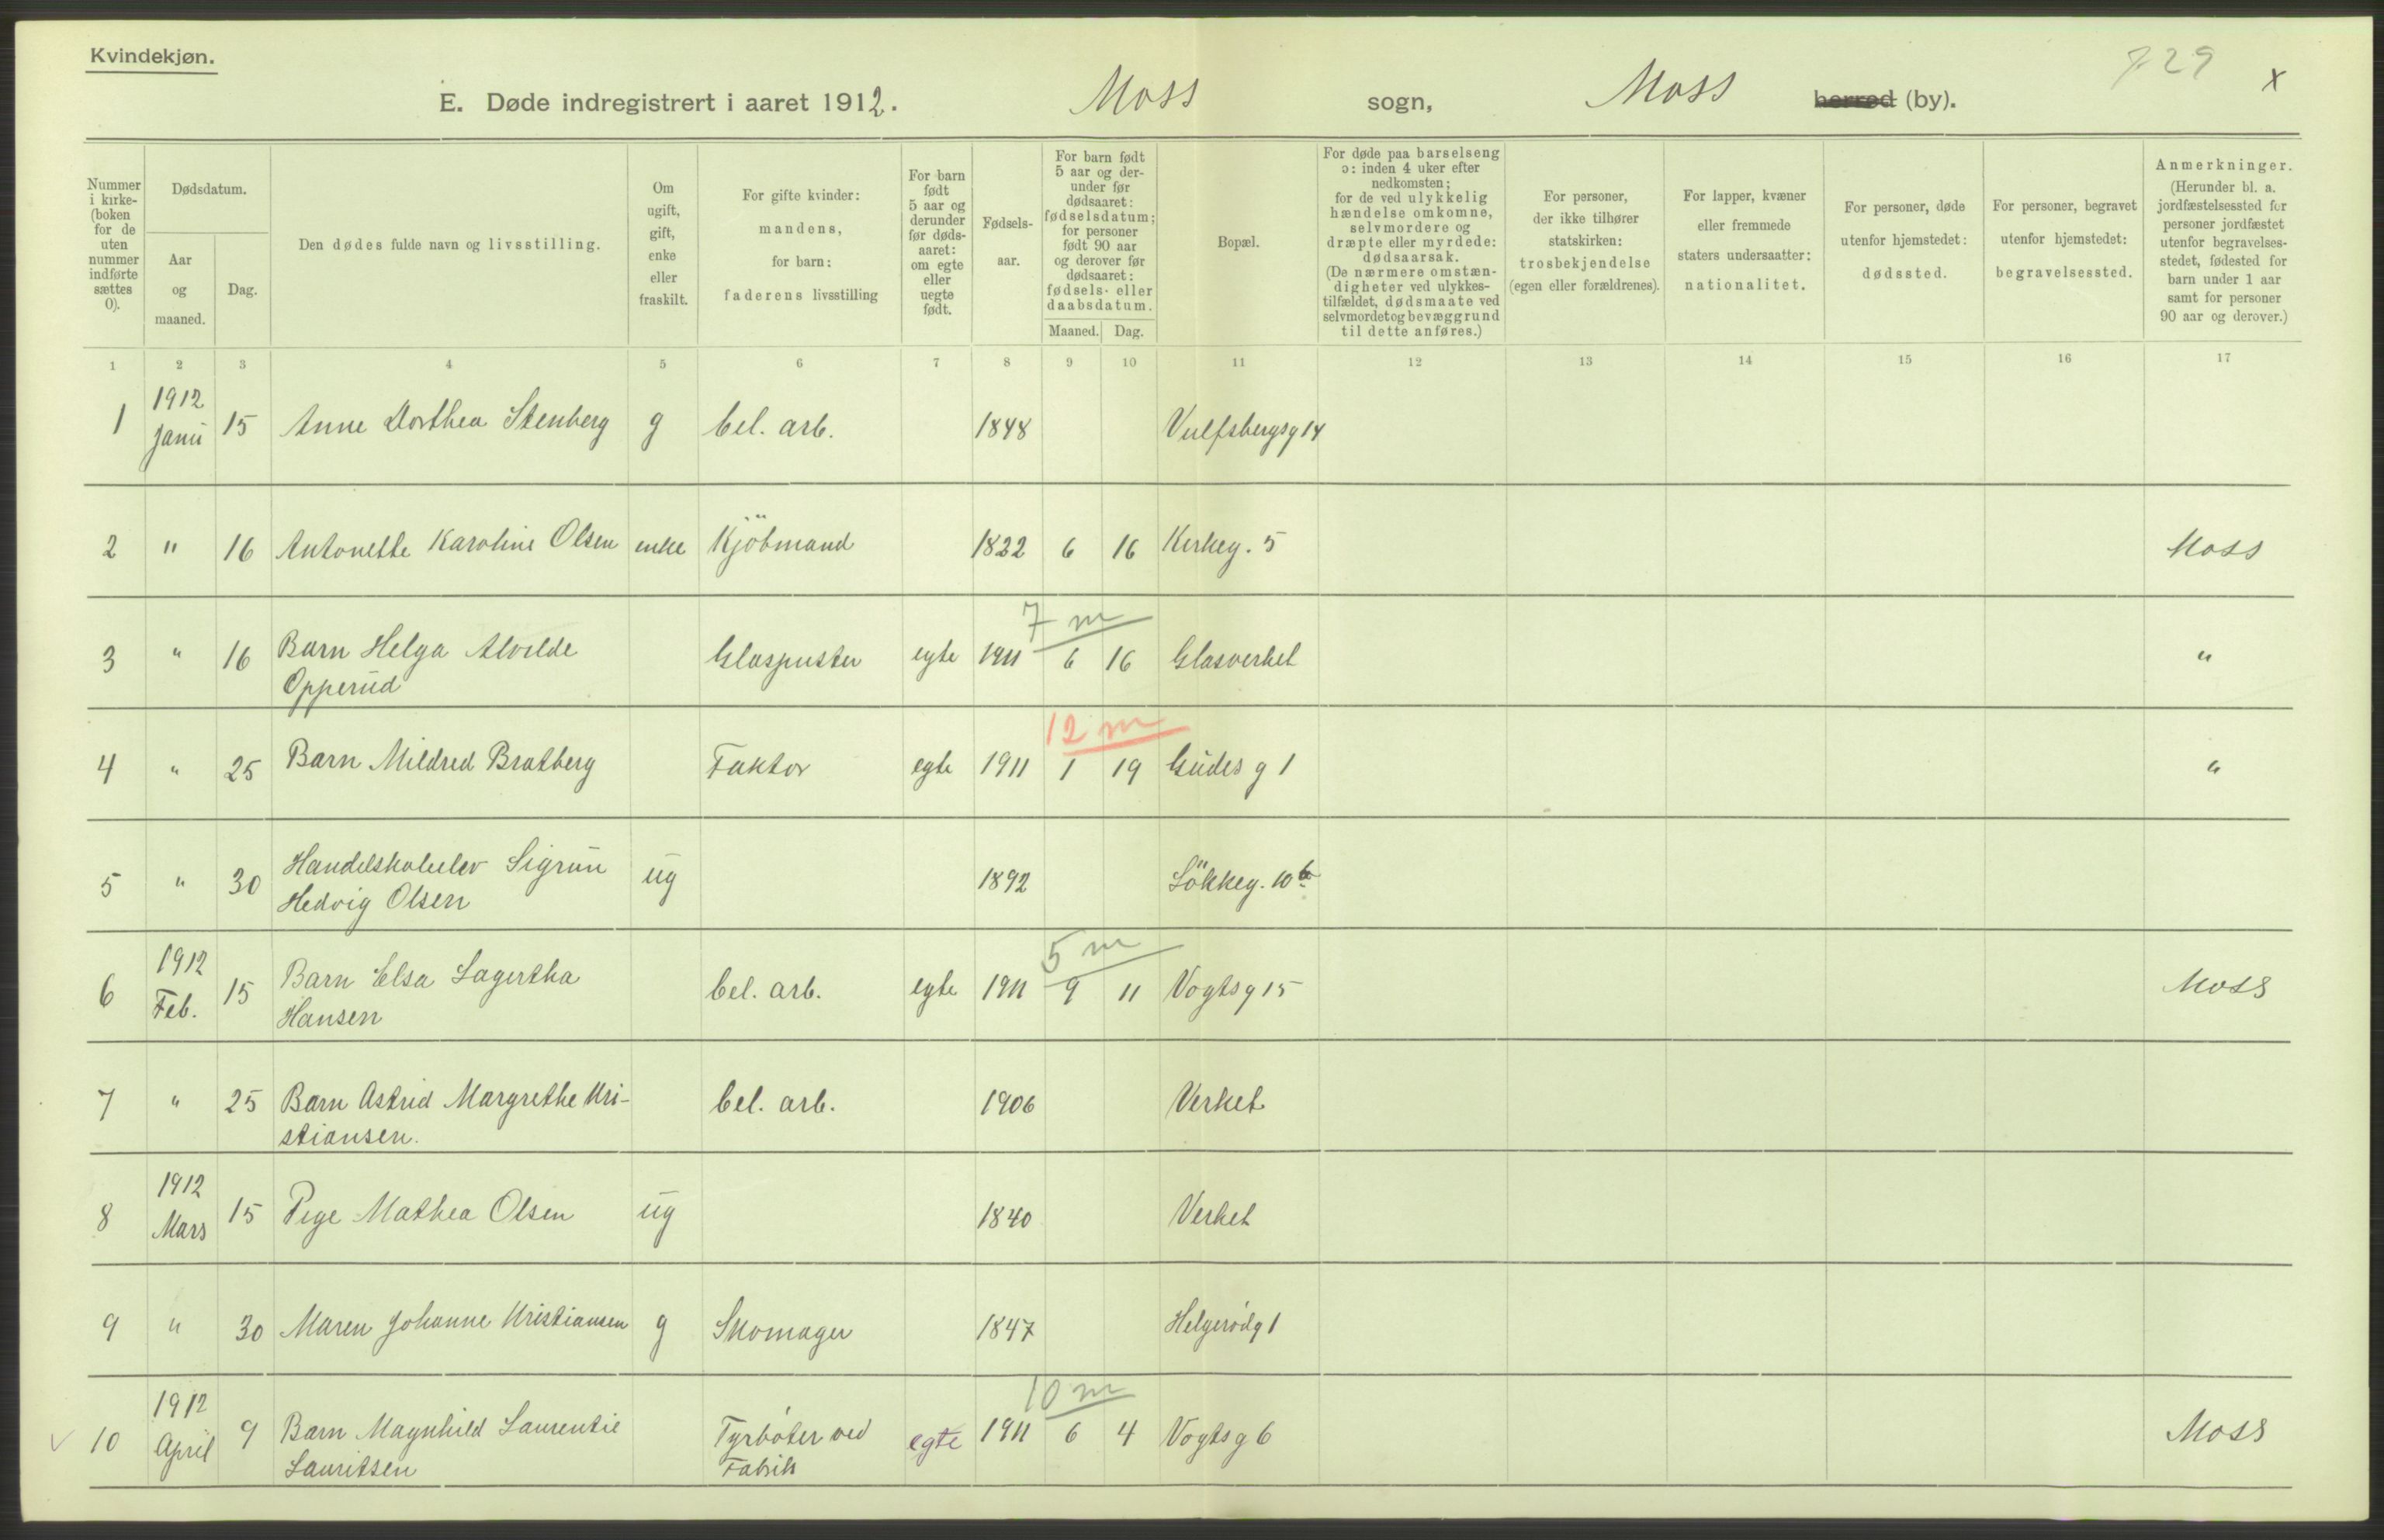 Kvindekjøn.
729 x
E. Døde indregistrert i aaret 1912. Moss sogn, Moss herred (by).
Nummer i kirke- (boken for de uten nummer indførte sættes 0).
Dødsdatum.
Aar og maaned.
Dag.
Den dødes fulde navn og livsstilling.
Om ugift, gift, enke eller fraskilt.
For gifte kvinder: mandens, for barn: faderens livsstilling
For barn født 5 aar og derunder før døds- aaret: om egte eller uegte født.
Fødsels- aar.
For barn født 5 aar og der- under før dødsaaret: fødselsdatum; for personer født 90 aar og derover før dødsaaret: fødsels- eller daabsdatum.
Maaned. Dag.
Bopæl.
For døde paa barselseng ɔ: inden 4 uker efter nedkomsten; for de ved ulykkelig hændelse omkomne, selvmordere og dræpte eller myrdede: dødsaarsak. (De nærmere omstæn- digheter ved ulykkes- tilfældet, dødsmaate ved selvmordet og bevæggrund til dette anføres.)
For personer, der ikke tilhører statskirken: trosbekjendelse (egen eller forældrenes).
For lapper, kvæner eller fremmede staters undersaatter: nationalitet.
For personer, døde utenfor hjemstedet: dødssted.
For personer, begravet utenfor hjemstedet: begravelsessted.
Anmerkninger. (Herunder bl. a. jordfæstelsessted for personer jordfæstet utenfor begravelses- stedet, fødested for barn under 1 aar samt for personer 90 aar og derover.)
1 2 3 4 5 6 7 8 9 10 11 12 13 14 15 16 17
1 1912 Janu 15 Anne Dorthea Stenberg g bel. arb. 1848 Vulfsbergsg 14
2 " 16 Antonette Karoline Olsen enke Kjöbmand 1822 6 16 Kirkeg. 5 Moss
7 m
3 " 16 Barn Helga Alvilde
Opperud Glaspuster egte 1911 6 16 Glasverket "
12 m
4 " 25 Barn Mildred Bratberg Faktor egte 1911 1 19 Gudes g 1 "
5 " 30 Handelskoleelev Sigrun
Hedvig Olsen ug 1892 Lökkeg. 10 b
5 m
6 1912 Feb. 15 Barn Elsa Lagertha
Hansen bel. arb. egte 1911 9 11 Vogtsg 15 Moss
7 " 25 Barn Astrid Margrethe Kri-
stiansen. bel. arb. 1906 Verket
8 1912 Mars 15 Pige Mathea Olsen ug 1840 Verket
9 " 30 Maren Johanne Kristiansen g Skomager 1847 Helgerödg 1
10 m
10 1912 April 9 Barn Magnhild Laurentie
Lauritsen Fyrböter ved
Fabrik egte 1911 6 4 Vogtsg 6 Moss